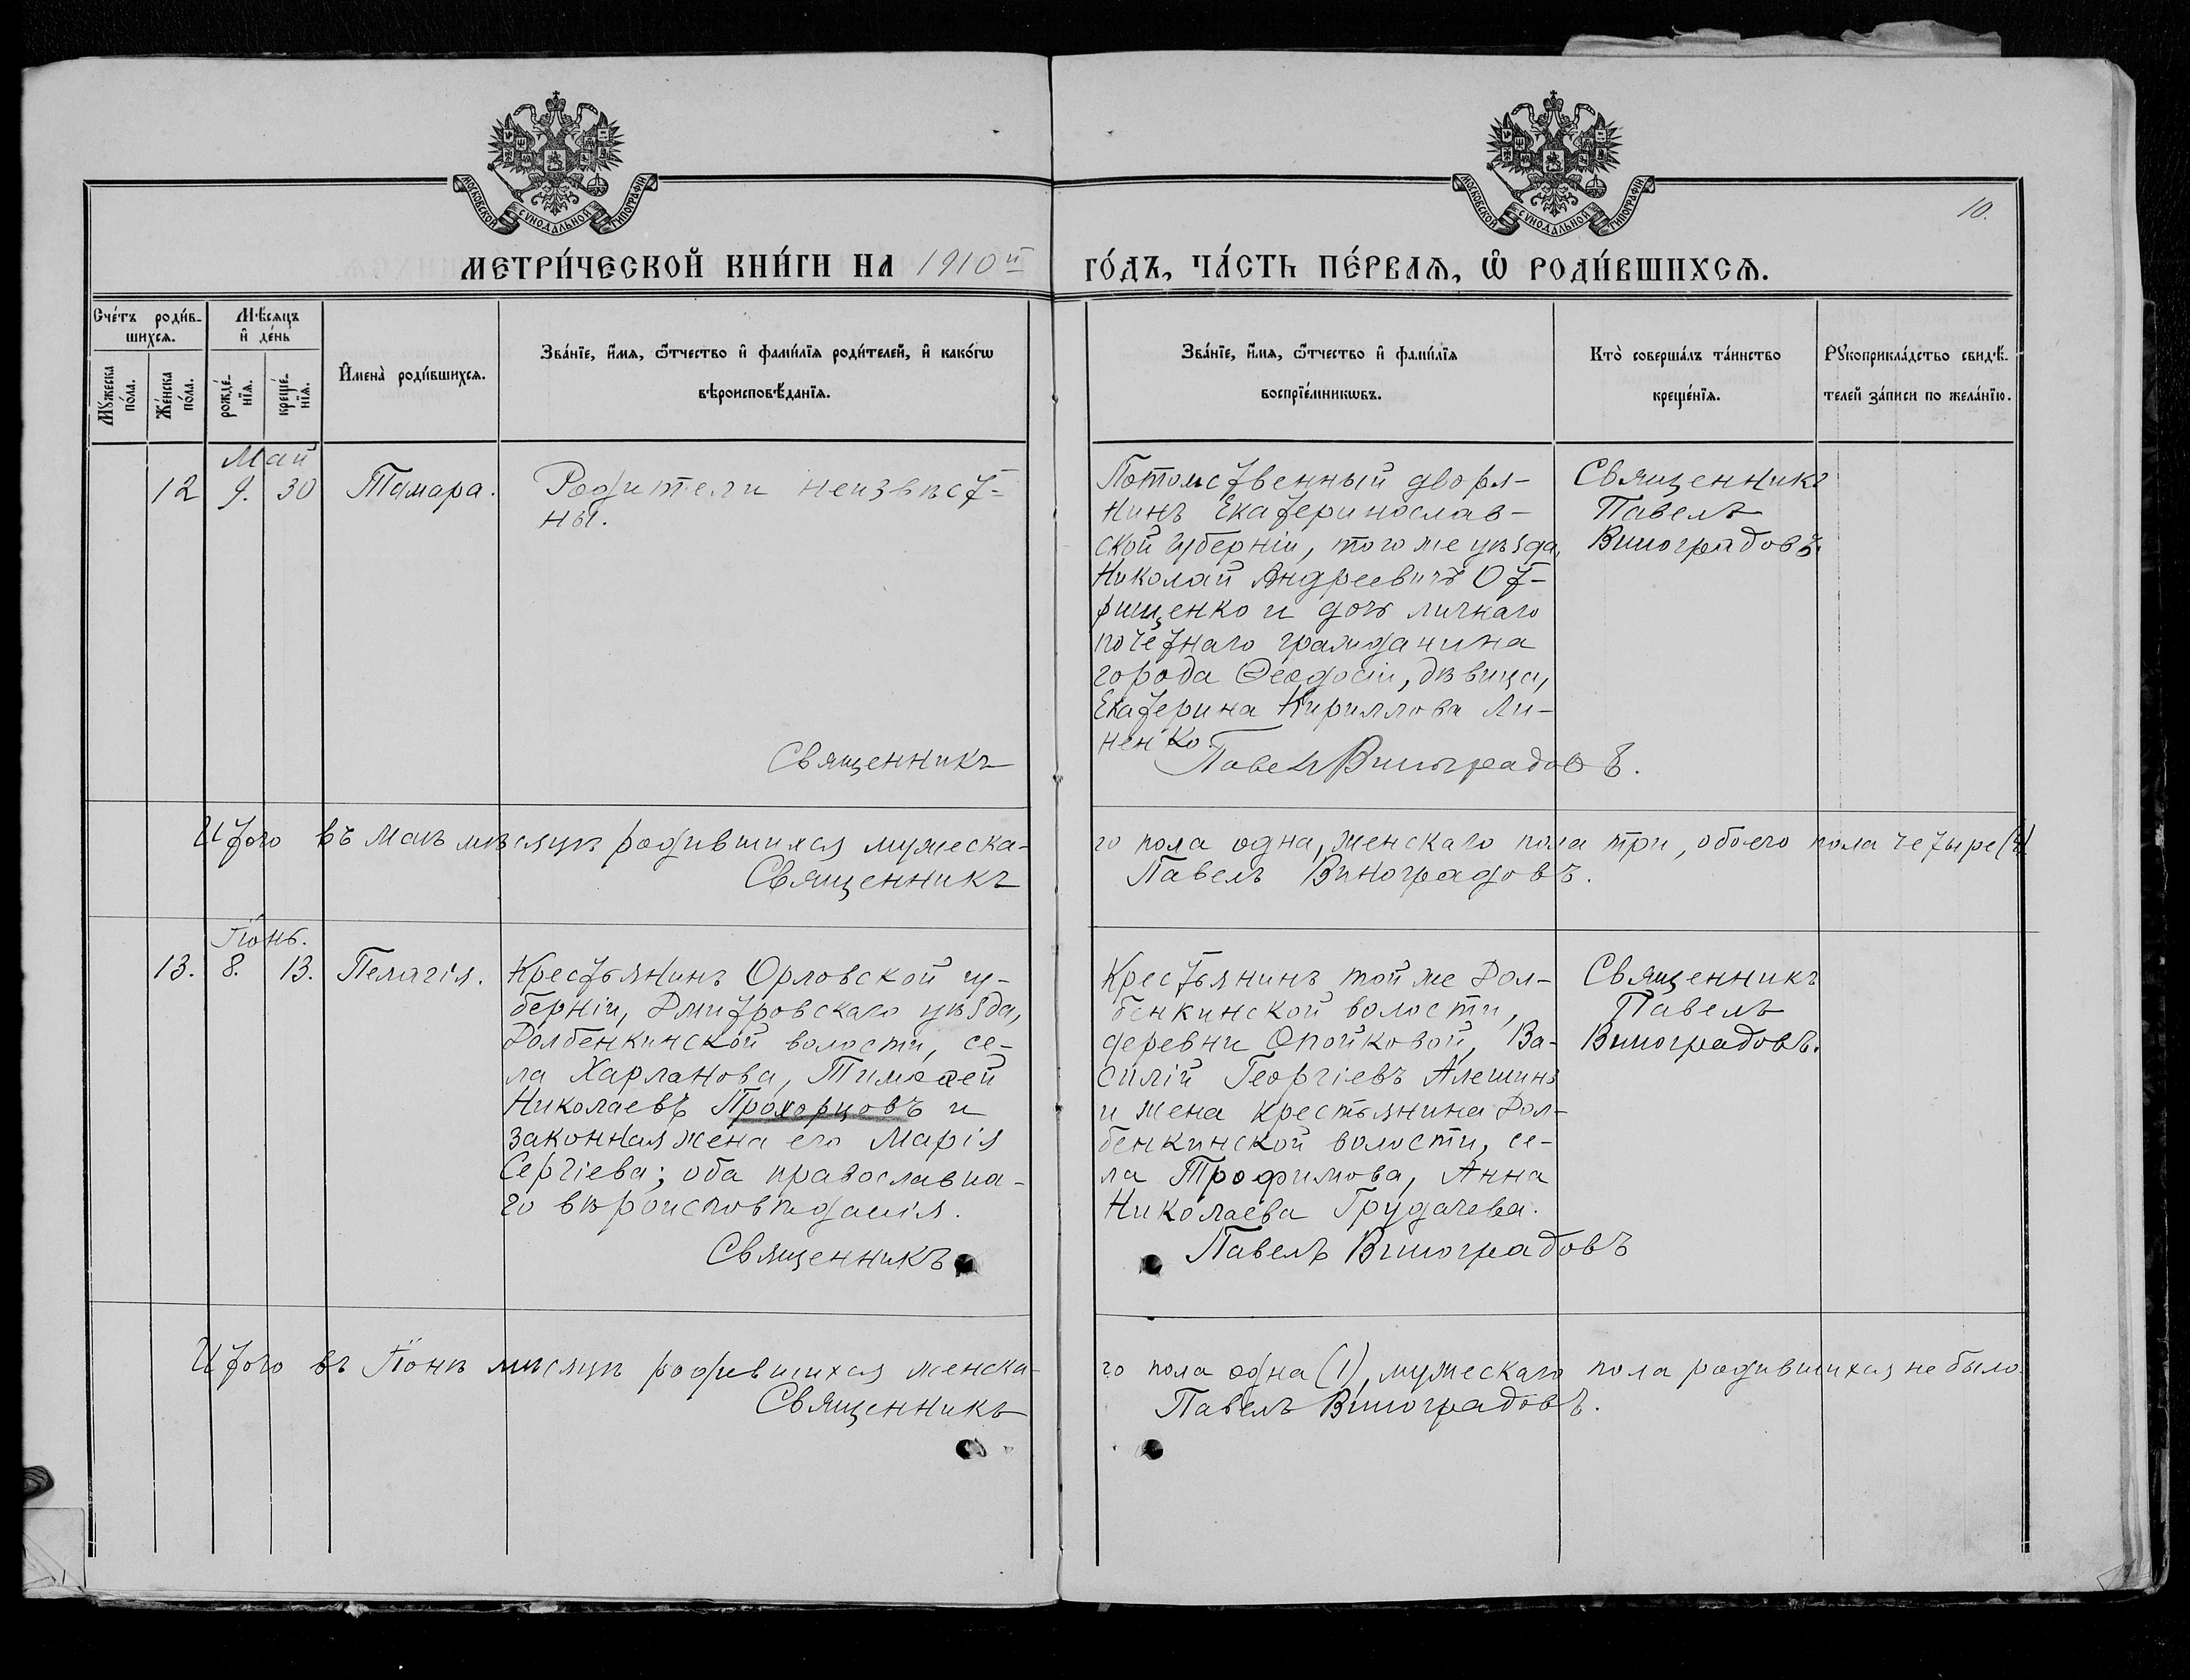 МОСКОВСКОЙ СѴНОДАЛЬНОЙ ТИПОГРАФІИ
МОСКОВСКОЙ СѴНОДАЛЬНОЙ ТИПОГРАФІИ
10.
МЕТРИ́ЧЕСКОЙ КНИ́ГИ НА 1910й ГО́ДЪ, ЧА́СТЬ ПЕ́РВАѦ, Ѡ҆ РОДИ́ВШИХСѦ.
Сче́тъ роди́в-
шихсѧ.
Мꙋ́жеска по́ла.
Же́нска по́ла.
Мѣ́сѧцъ
и҆ де́нь
рожде́-
нїѧ.
креще́-
нїѧ.
И҆мена̀ роди́вшихсѧ.
Зва́нїе, и҆́мѧ, ѻ҆́тчество и҆ фами́лїѧ роди́телей, и҆ како́гѡ
вѣроисповѣ́данїѧ.
Зва́нїе, и҆́мѧ, ѻ҆́тчество и҆ фами́лїѧ
воспрїе́мникѡвъ.
Кто̀ соверша́лъ та́инство
креще́нїѧ.
Рꙋкоприкла́дство свидѣ́-
телей за́писи по жела́нїю.
Май
12 9. 30 Тамара.
Родители неизвѣст-
ны.
Священникъ
Потомственный дворя-
нинъ Екатеринослав-
ской губерніи, того же уѣзда,
Николай Андреевичъ От-
рищенко и дочь личнаго
почетнаго гражданина
города Ѳеодосіи, дѣвица,
Екатерина Кириллова Ли-
ненко.
Павелъ Виноградовъ.
Священникъ
Павелъ
Виноградовъ.
Итого въ маѣ мѣсяцѣ родившихся мужеска-го пола одна, женскаго пола три, обоего пола четыре (4)
Священникъ Павелъ Виноградовъ.
Іюнь.
13. 8. 13. Пелагія.
Крестьянинъ Орловской гу-
берніи, Дмитровскаго уѣзда,
Долбенкинской волости, се-
ла Харланова, Тимоѳей
Николаевъ Прохорцовъ и
законная жена его Марія
Сергіева; оба православна-
го вѣроисповѣданія.
Священникъ
Крестьянинъ той же Дол-
бенкинской волости,
деревни Опойковой, Ва-
силій Георгіевъ Алешинъ
и жена крестьянина Дол-
бенкинской волости, се-
ла Трофимова, Анна
Николаева Грудачева.
Павелъ Виноградовъ
Священникъ
Павелъ
Виноградовъ.
Итого въ Іюнѣ мѣсяцѣ родившихся женска-го пола одна (1), мужескаго пола родившихся не было.
Священникъ Павелъ Виноградовъ.